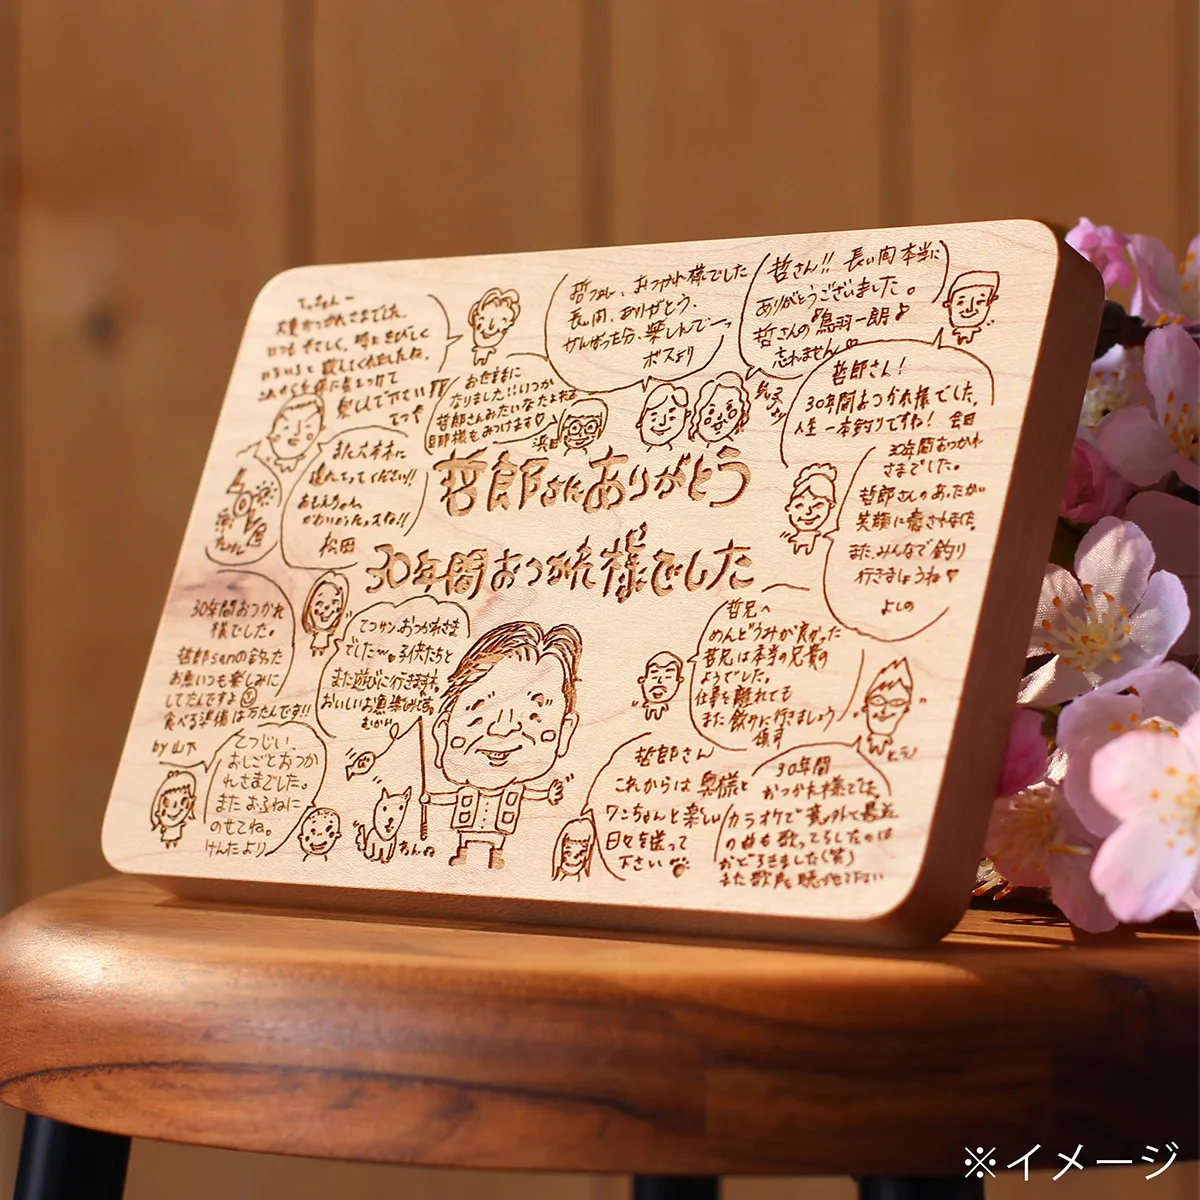 てっちゃんー
大変おつかれさまでした。
いつもやさしく、時にきびしく
いろいろと教えてくれましたね。
これからも体に気をつけて
哲兄、おつかれ様でした
長い間、ありがとう、
がんばった分、楽しんで〜っ
ボスより
哲さん!! 長い間本当に
ありがとうございました。
哲さんの『鳥羽一朗』
忘れません
お世話に
なりました!!いつか
哲郎さんみたいなたよれる
旦那様もみつけます♡
浜田
哲郎さん!
30年間おつかれ様でした。
人生一本釣りですね! 会田
また六本木に
連れてってください!!
松田
哲郎さんにありがとう
30年間おつかれ様でした
30年間おつかれ
さまでした。
哲郎さんのあったかい
笑顔に癒されました。
また、みんなで釣り
行きましょうね♡
よしの
30年間おつかれ
様でした。
哲郎sanの釣った
お魚いつも楽しみに
してたんですよ
食べる準備は万たんです!!
by 山下
てつサン、おつかれさま
でした〜。子供たちと
また遊びに行きますネ。
おいしいお魚
哲兄へ
めんどうみが良かった
哲兄は本当の兄貴の
ようでした。
仕事を離れても
また飲みに行きましょう
てつじい、
おしごとおつか
れさまでした。
またおふねに
のせてね。
けんたより
哲郎さん
これからは奥様と
ワこちゃんと楽しい
日々を送って
下さい
30年間
おつかれ様でした。
カラオケで意外して最近
の曲も歌ってらしたのは
おどろきました(笑)
また歌声聴かせて下さい
※イメージ